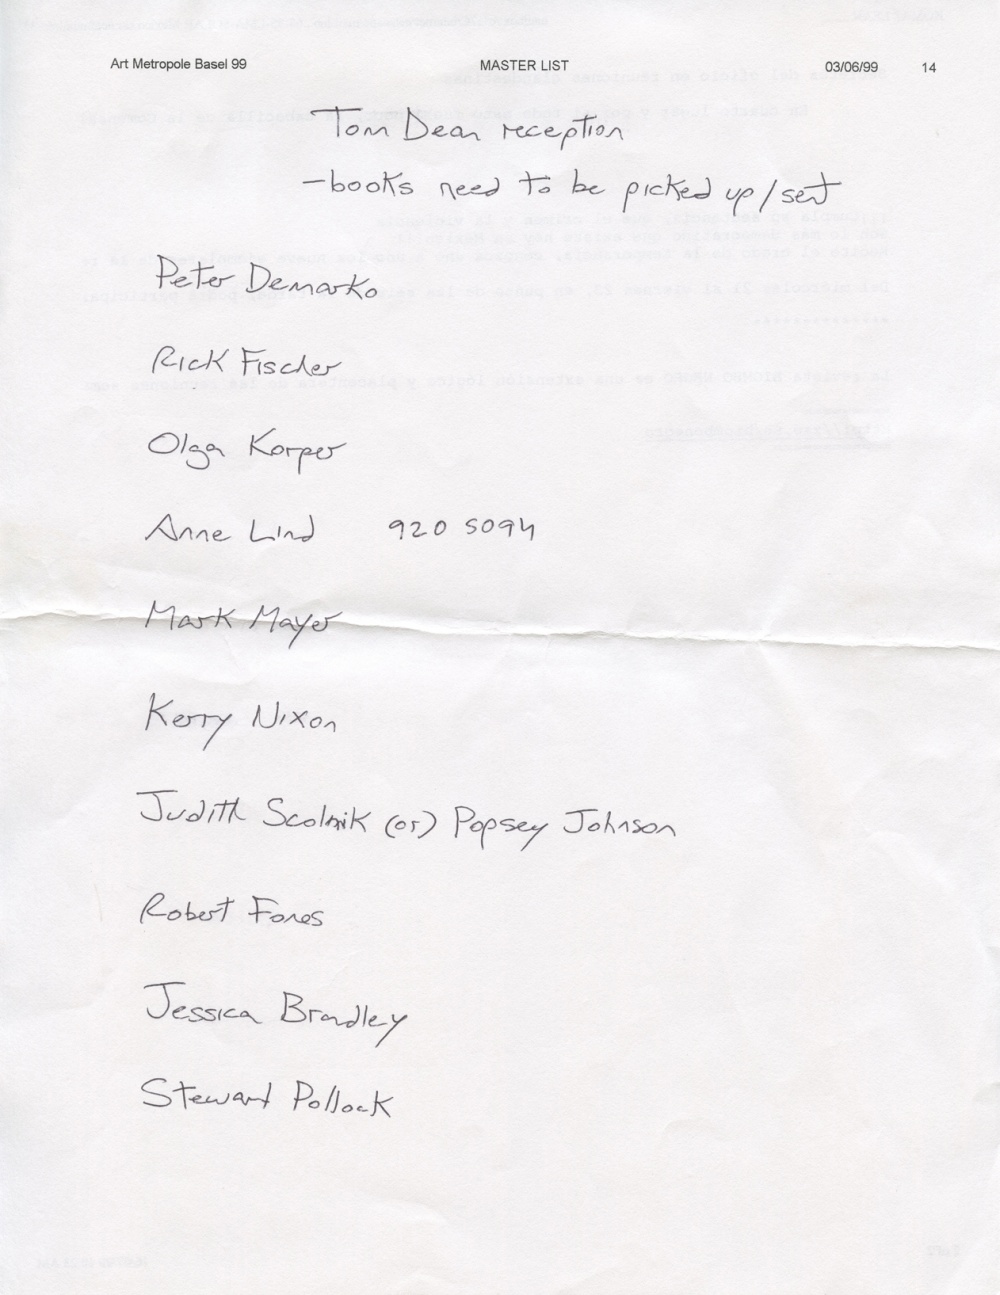 Art Metropole Basel 99 MASTER LIST 03/06/99 14
Tom Dean reception
-books need to be picked up/sent
Peter Demarko
Rick Fischer
Olga Korper
Anne Lind 920 5094
Mark Mayer
Kerry Nixon
Judith Scolnik (or) Popsey Johnson
Robert Fones
Jessica Bradley
Stewart Pollock